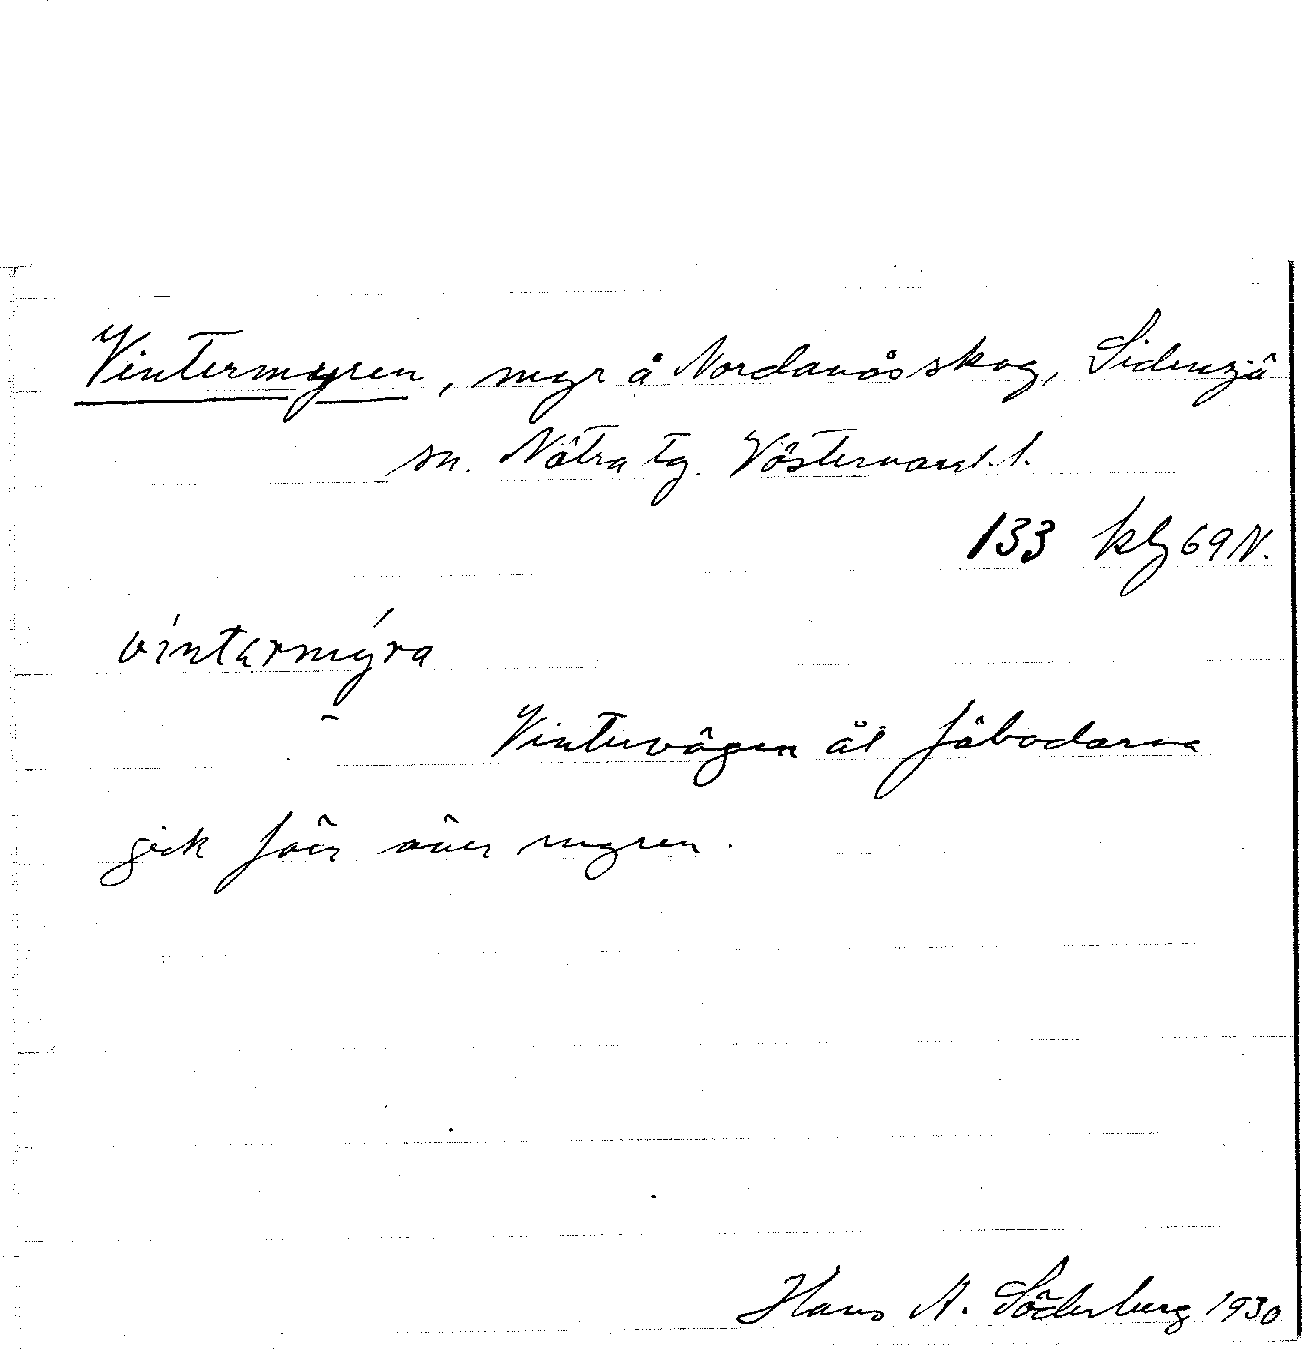 Vintermyren, myr å Nordanås skog, Sidensjö
sn. Nätra tg. Västernorrl. l.
133 kbl 69 N.
víntarmýra
Vintervägen åt fäbodarna
gick förr över myren.
Hans A. Söderberg 1930